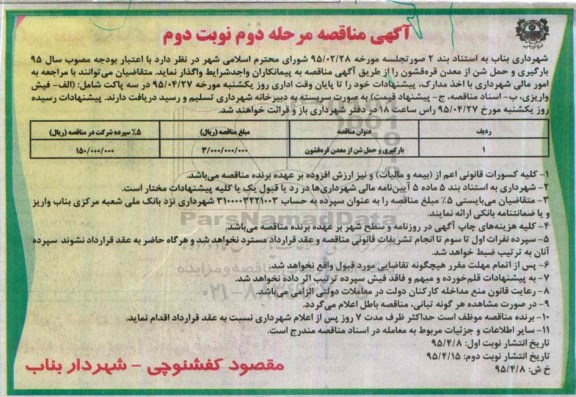 آگهی مناقصه مرحله دوم نوبت دوم
شهرداری بناب به استناد بند ۲ صورتجلسه مورخه ۹۵/۰۲/۲۸ شورای محترم اسلامی شهر در نظر دارد با اعتبار بودجه مصوب سال ۹۵
بارگیری و حمل شن از معدن قره‌قشون را از طریق آگهی مناقصه به پیمانکاران واجدشرایط واگذار نماید. متقاضیان می‌توانند با مراجعه به
امور مالی شهرداری با اخذ مدارک، پیشنهادات خود را تا پایان وقت اداری روز یکشنبه مورخه ۹۵/۰۴/۲۷ در سه پاکت شامل: (الف - فیش
واریزی، ب- اسناد مناقصه، ج- پیشنهاد قیمت) به صورت سربسته به دبیرخانه شهرداری تسلیم و رسید دریافت دارند. پیشنهادات رسیده
روز یکشنبه مورخ ۹۵/۰۴/۲۷ راس ساعت ۱۸ در دفتر شهرداری باز و قرائت خواهند شد.
ردیف عنوان مناقصه مبلغ مناقصه (ریال) ۵٪ سپرده شرکت در مناقصه (ریال)
۱ بارگیری و حمل شن از معدن قره‌قشون ۳/۰۰۰/۰۰۰/۰۰۰ ۱۵۰/۰۰۰/۰۰۰
۱- کلیه کسورات قانونی اعم از (بیمه و مالیات) و نیز ارزش افزوده بر عهده برنده مناقصه می‌باشد.
۲- شهرداری به استناد بند ۵ ماده ۵ آیین‌نامه مالی شهرداری‌ها در رد یا قبول یک یا کلیه پیشنهادات مختار است.
۳- متقاضیان می‌بایستی ۵٪ مبلغ مناقصه را به عنوان سپرده به حساب ۳۱۰۰۰۰۳۲۲۱۰۰۳ شهرداری نزد بانک ملی شعبه مرکزی بناب واریز
و یا ضمانتنامه بانکی ارائه نمایند.
۴- کلیه هزینه‌های چاپ آگهی در روزنامه و سطح شهر بر عهده برنده مناقصه می‌باشد.
۵- سپرده نفرات اول تا سوم تا انجام تشریفات قانونی مناقصه و عقد قرارداد مسترد نخواهد شد و هرگاه حاضر به عقد قرارداد نشوند سپرده
آنان به ترتیب ضبط خواهد شد.
۶- پس از اتمام مهلت مقرر هیچگونه تقاضایی مورد قبول واقع نخواهد شد.
۷- به پیشنهادات قلم‌خورده و مبهم و فاقد فیش سپرده ترتیب اثر داده نخواهد شد.
۸- رعایت قانون منع مداخله کارکنان دولت در معاملات دولتی الزامی می‌باشد.
۹- در صورت مشاهده هر گونه تبانی، مناقصه باطل اعلام می‌گردد.
۱۰- برنده مناقصه موظف است حداکثر ظرف مدت ۷ روز پس از اعلام شهرداری نسبت به عقد قرارداد اقدام نماید.
۱۱- سایر اطلاعات و جزئیات مربوط به معامله در اسناد مناقصه مندرج است.
تاریخ انتشار نوبت اول: ۹۵/۴/۸
تاریخ انتشار نوبت دوم: ۹۵/۴/۱۵
خ ش: ۹۵/۴/۸
مقصود کفشنوچی - شهردار بناب
ParsNamadData